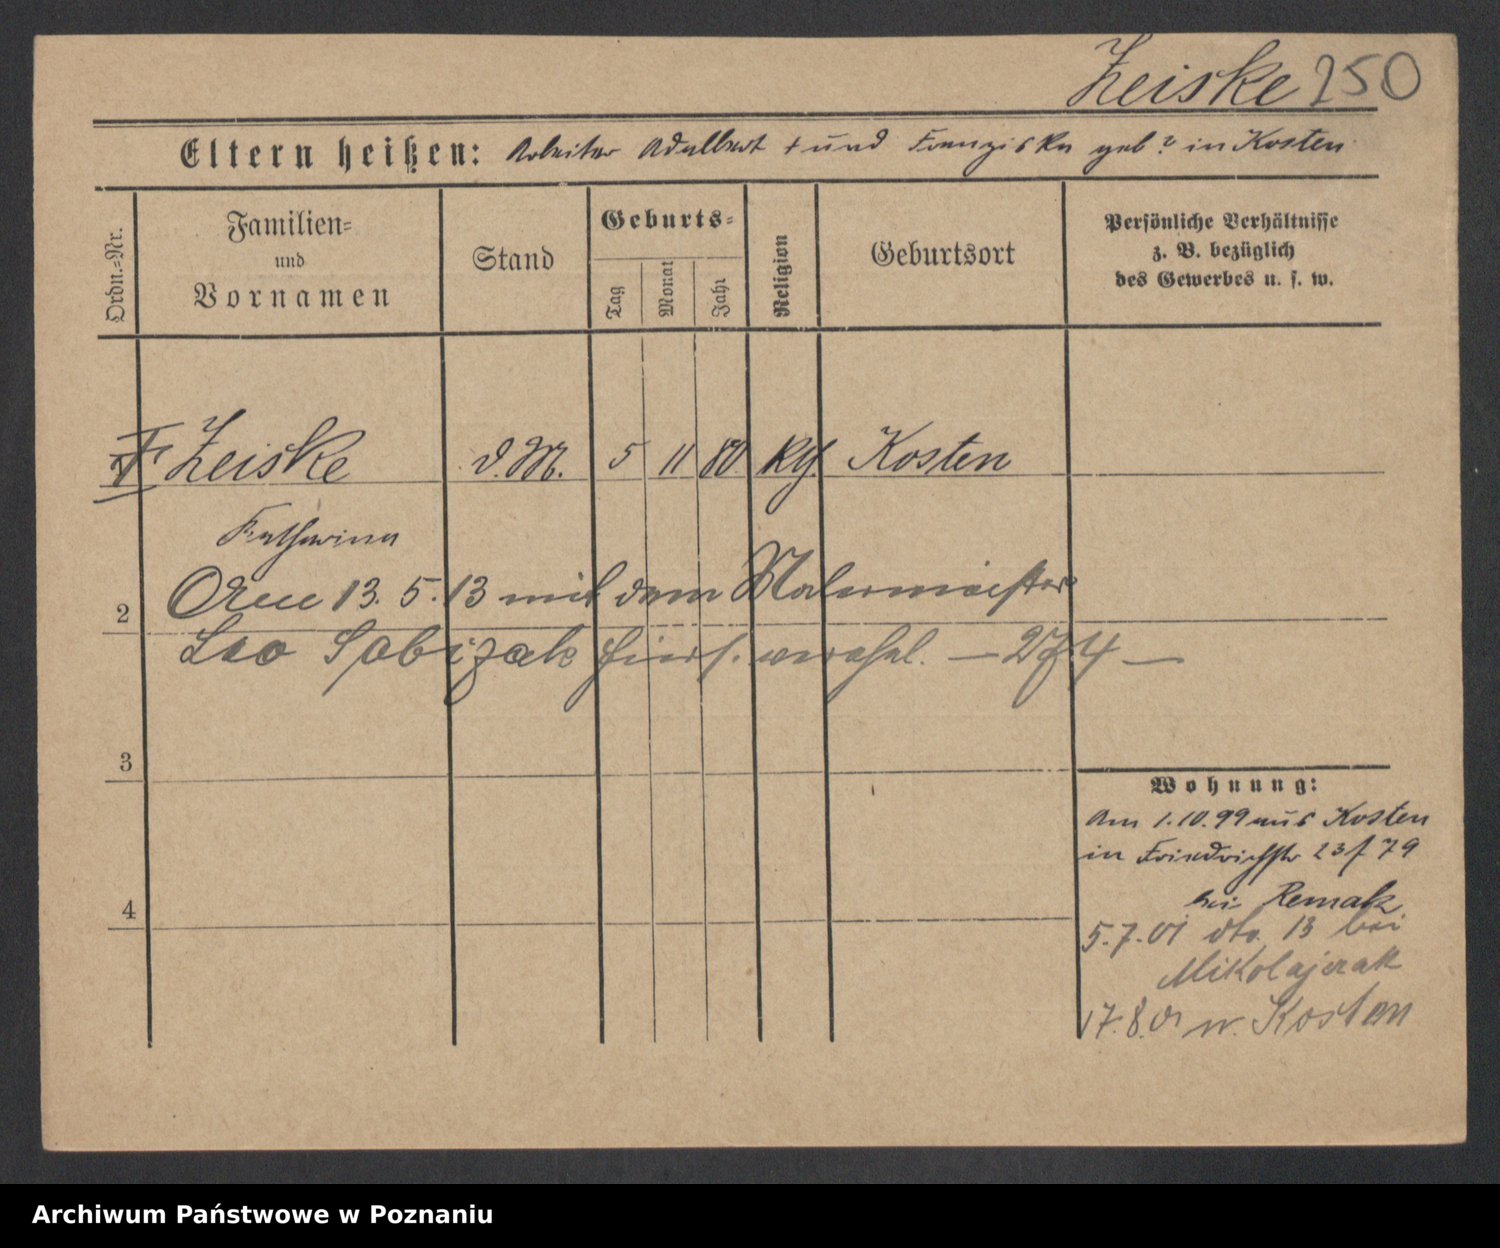 Zeiske 250
Eltern heißen: Arbeiter Adalbert + und Franziska geb ? in Kosten
Ordn.=Nr.
Familien=
und
Vornamen
Stand
Geburts=
Tag
Monat
Jahr
Religion
Geburtsort
Persönliche Verhältnisse
z. B. bezüglich
des Gewerbes u. s. w.
Zeiske d. M. 5 11 80 Kosten
Katharina
2 13. 5. 13 mit dem Malermeister
Leo hiers. verehel. — 274 —
3
4
Wohnung:
Am 1.10.99 aus Kosten
in Friedrichstr 23 / 79
bei Remak
5.7.01 dto. 13 bei
Mikolajczak
17.8.01 n. Kosten
Archiwum Państwowe w Poznaniu